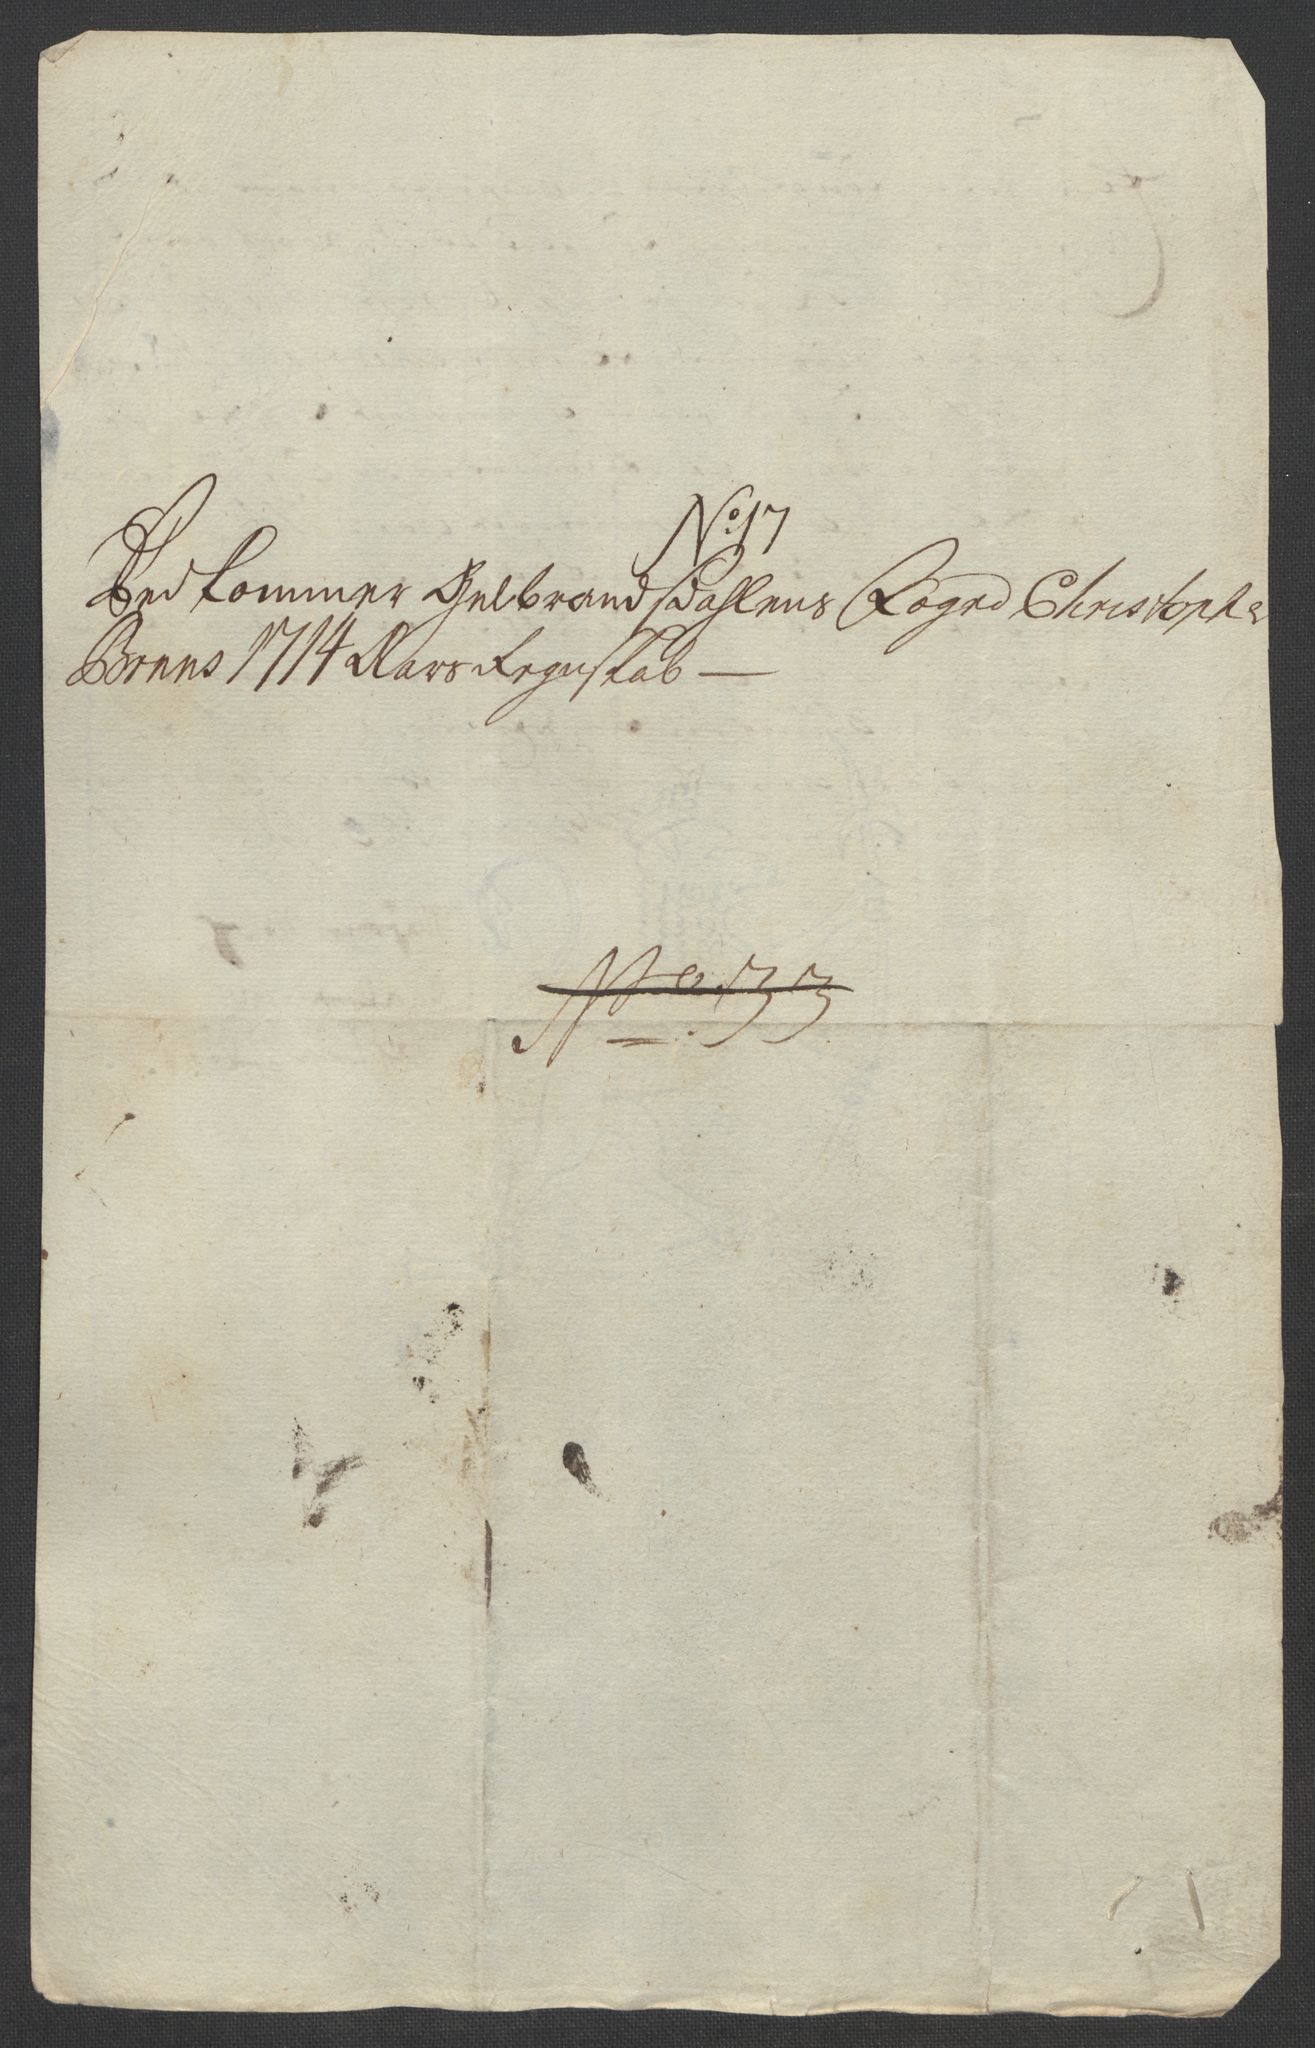 No. 17
Vedkommer Gulbrandsdahlens Foged Christopher
Bruns 1714 Aars Regnskab —
No. 33